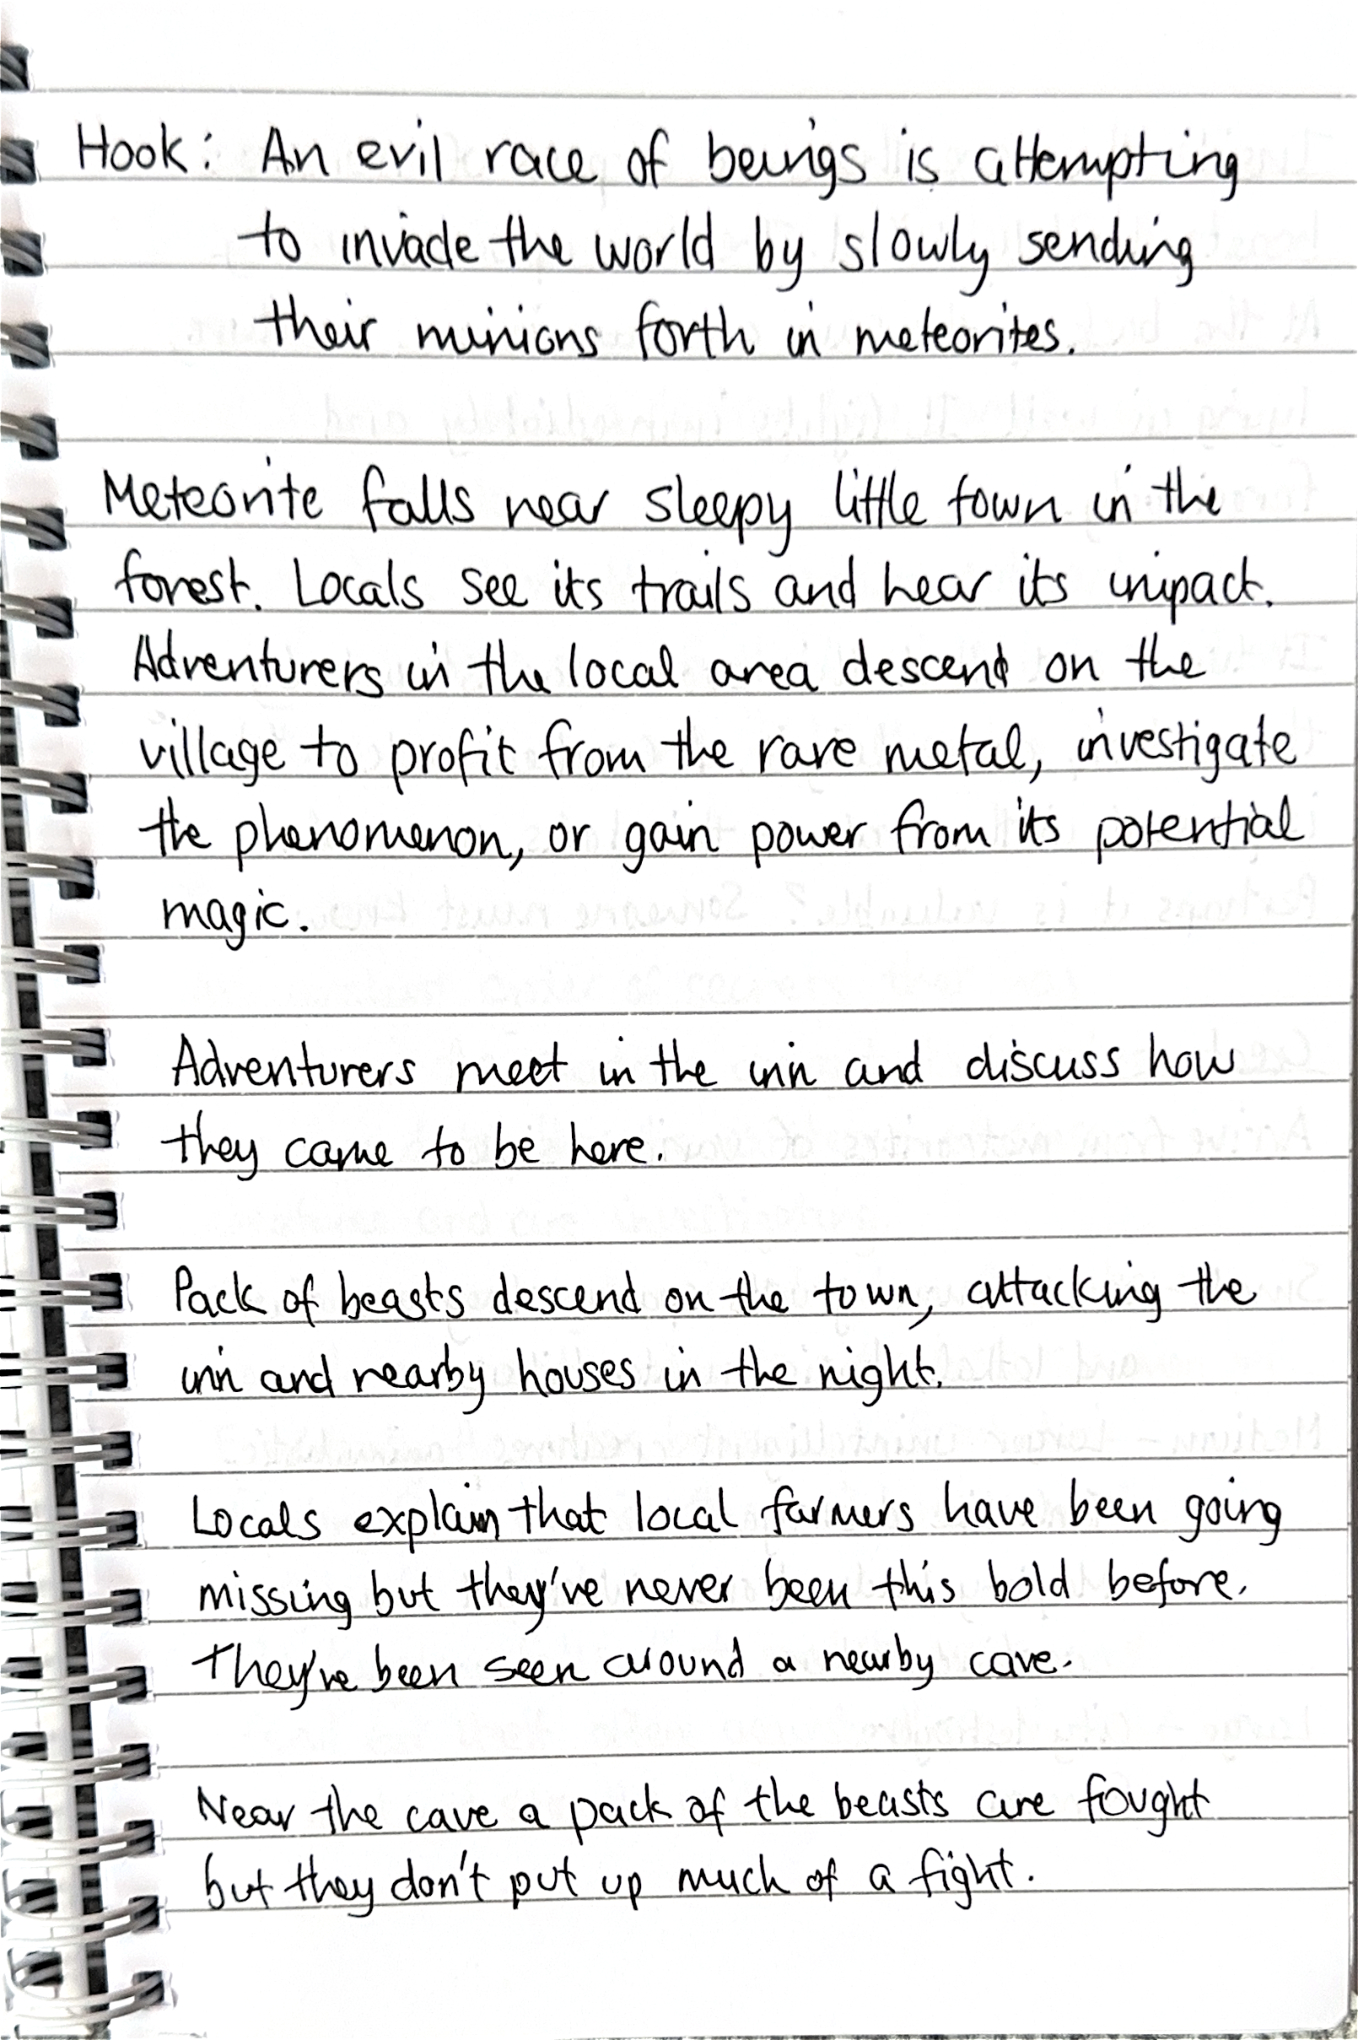 Hook: An evil race of beings is attempting
to invade the world by slowly sending
their minions forth in meteorites.
Meteorite falls near sleepy little town in the
forest. Locals see its trails and hear its impact.
Adventurers in the local area descend on the
village to profit from the rare metal, investigate
the phenomenon, or gain power from its potential
magic.
Adventurers meet in the inn and discuss how
they came to be here.
Pack of beasts descend on the town, attacking the
inn and nearby houses in the night.
Locals explain that local farmers have been going
missing but they've never been this bold before.
They've been seen around a nearby cave.
Near the cave a pack of the beasts are fought
but they don't put up much of a fight.